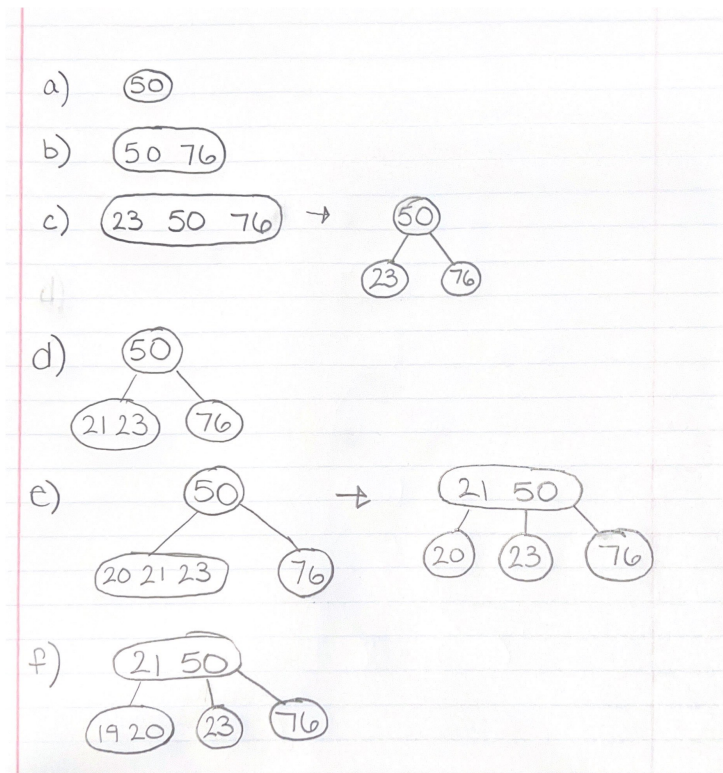 a) 50
b) 50 76
c) 23 50 76 → 50
23 76
d)
d) 50
21 23 76
e) 50 → 21 50
20 21 23 76 20 23 76
f) 21 50
19 20 23 76